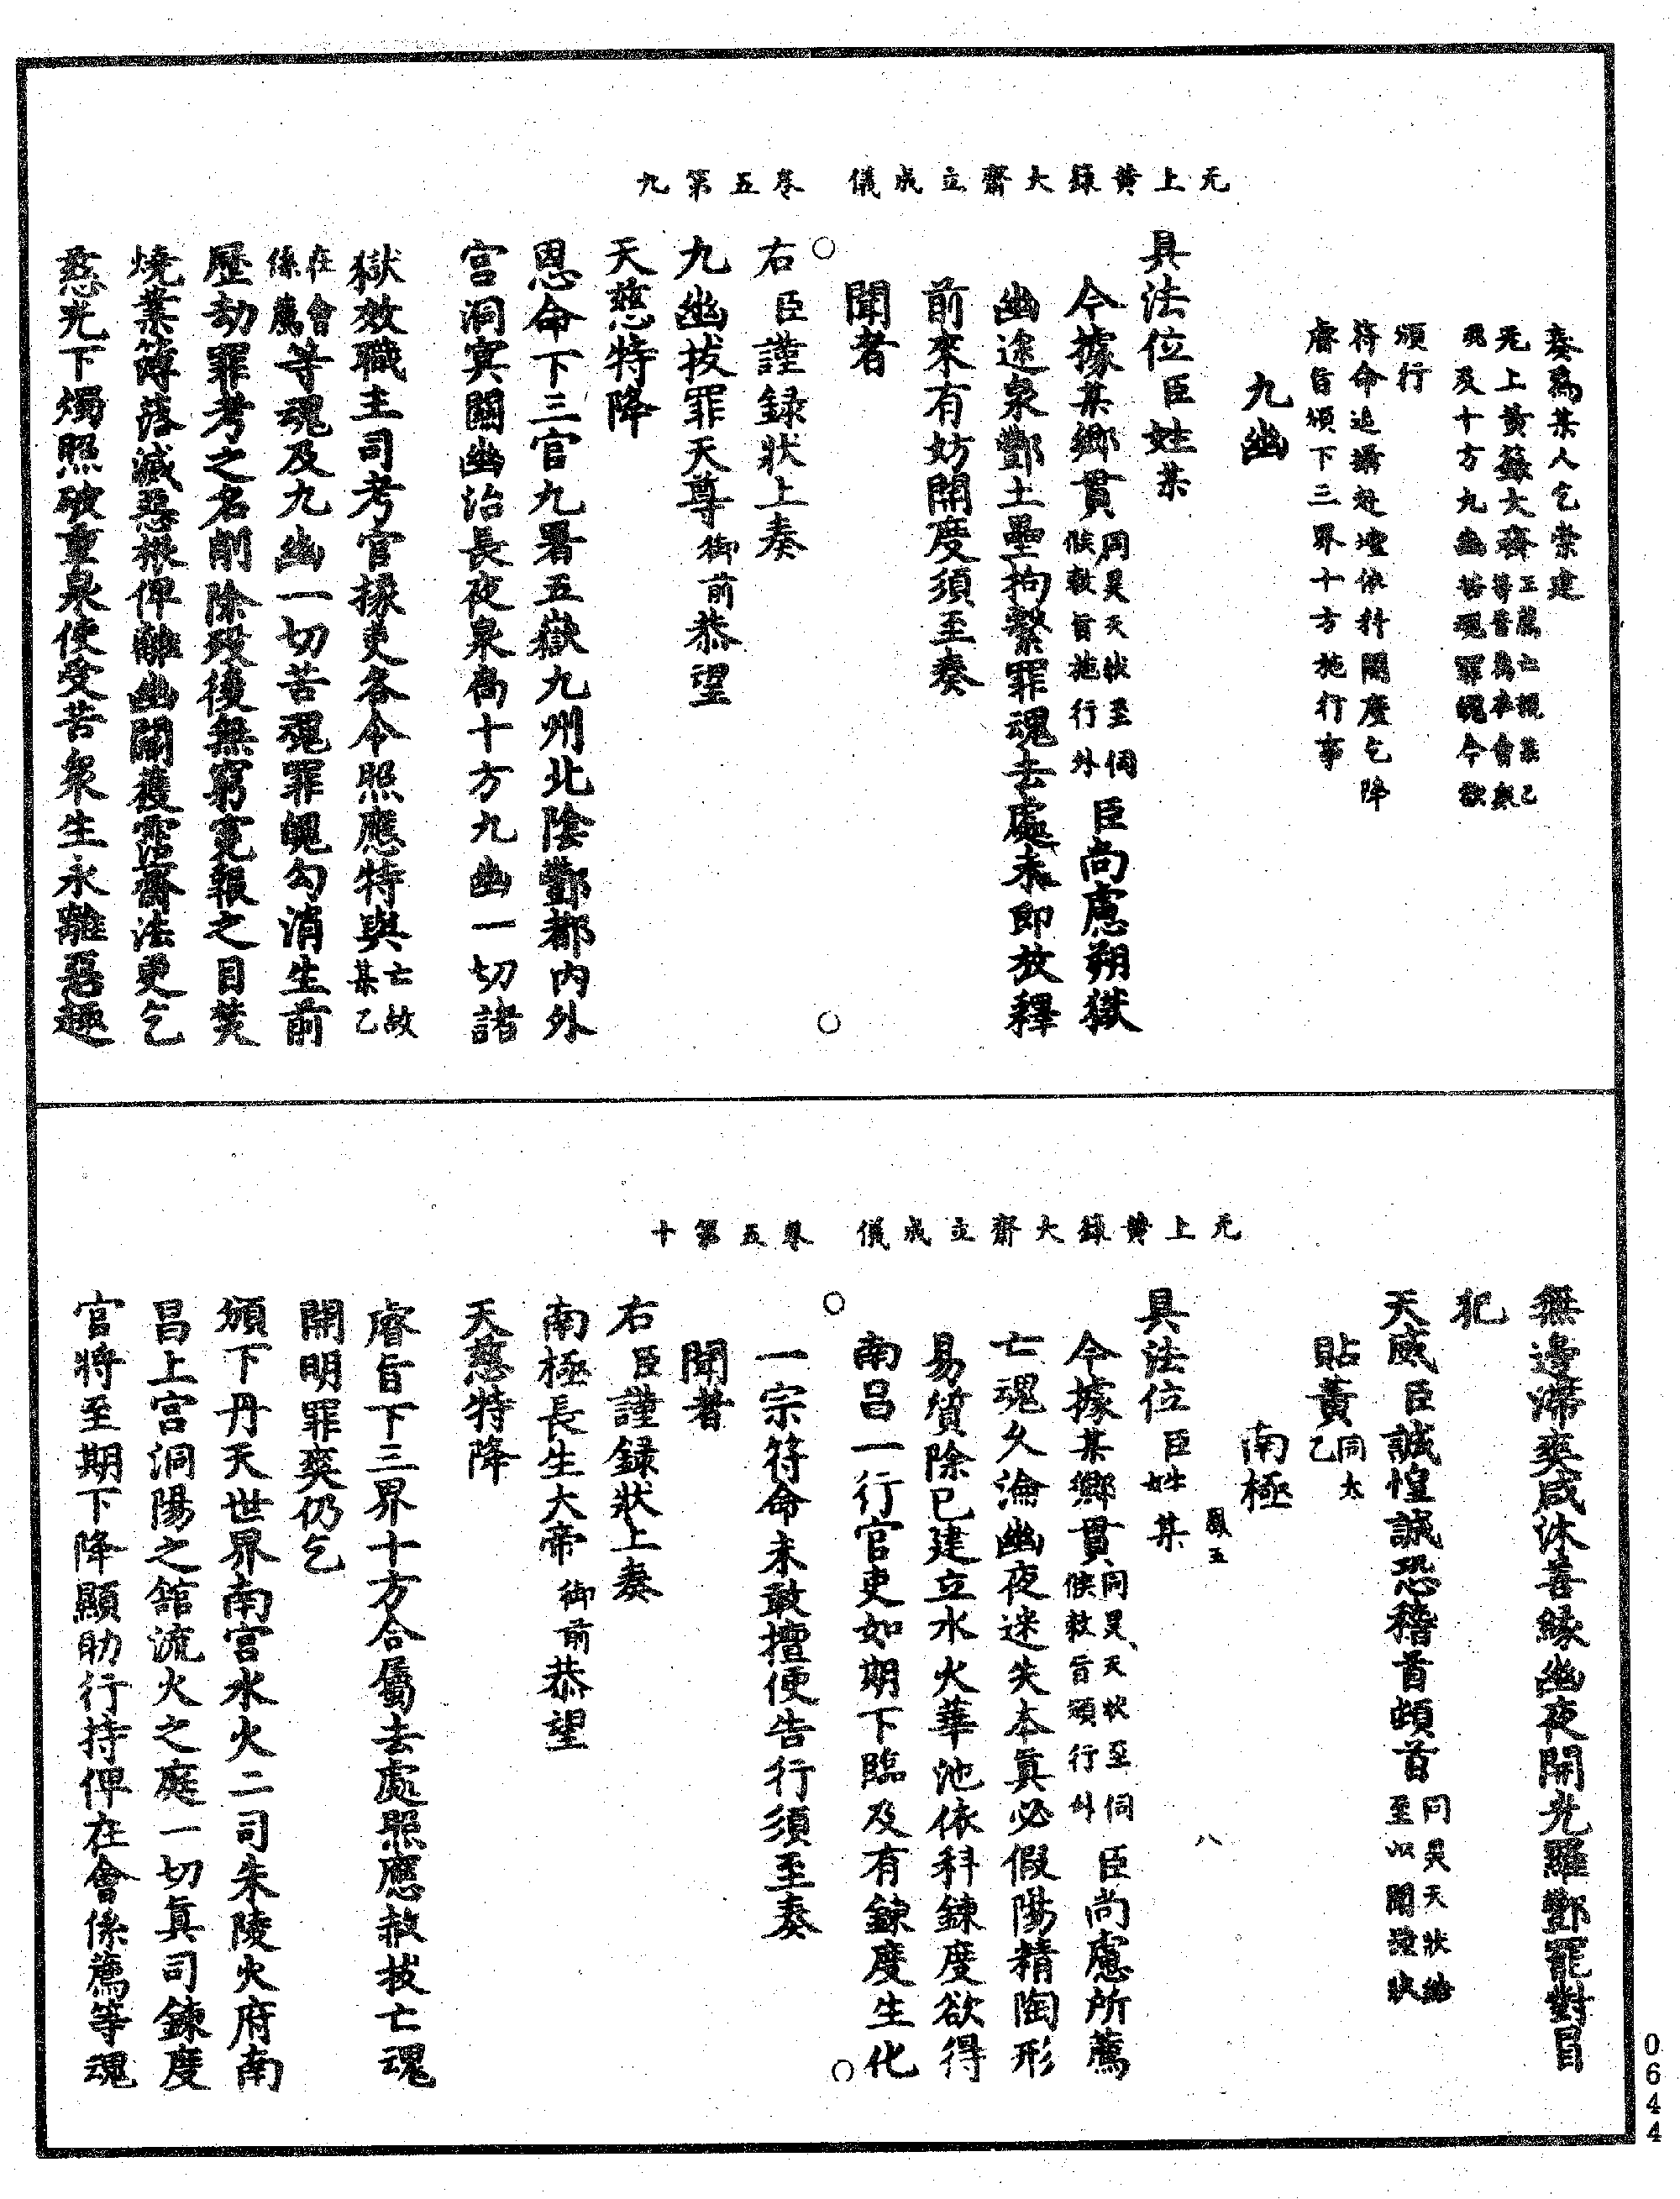 无上黃籙大齋立成儀　卷五第九
奏爲某人乞崇建
无上黃籙大齋正薦亡魂某乙等普爲在會無
魂及十方九幽苦魂罪魄今欲
頒行
符命追攝赴壇依科開度乞降
睿旨頒下三界十方施行事
九幽
具法位臣姓某
今據某鄉貫同昊天狀至伺候敕旨施行外臣尚慮朔獄
幽途泉酆土壘拘繫罪魂去處未即放釋
前來有妨開度須至奏
聞者
右臣謹録狀上奏
九幽拔罪天尊御前恭望
天慈特降
恩命下三官九署五嶽九州北陰酆都內外
宮洞冥關幽治長夜泉扃十方九幽一切諸
獄效職主司考官掾吏各令照應特與亡故某乙
在會係薦等魂及九幽一切苦魂罪魄勾消生前
歷劫罪考之名削除歿後無窮寃報之目焚
燒業簿落滅惡根俾離幽關獲霑齋法更乞
慈光下燭照破重泉使受苦衆生永離惡趣
无上黃籙大齋立成儀　卷五第十
無邊滯爽咸沐善緣幽夜開光羅酆罷對冒
犯
天威臣誠惶誠恐稽首頓首同昊天狀繳至以聞謹狀
貼黃同太乙
南極
具法位臣姓某
今據某鄉貫同昊天狀至伺候敕旨頒行外臣尚慮所薦
亡魂久淪幽夜迷失本眞必假陽精陶形
易質除已建立水火華池依科鍊度欲得
南昌一行官吏如期下臨及有鍊度生化
一宗符命未敢擅便告行須至奏
聞者
右臣謹録狀上奏
南極長生大帝御前恭望
天慈特降
睿旨下三界十方合屬去處照應赦拔亡魂
開明罪爽仍乞
頒下丹天世界南宮水火二司朱陵火府南
昌上宮洞陽之舘流火之庭一切眞司鍊度
官將至期下降顯助行持俾在會係薦等魂
八
0644